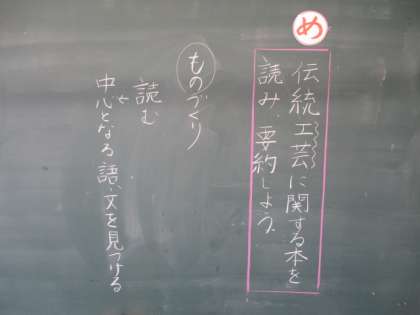 め
伝統工芸に関する本を
読み、要約しよう。
ものづくり
読む
中心となる語、文を見つける